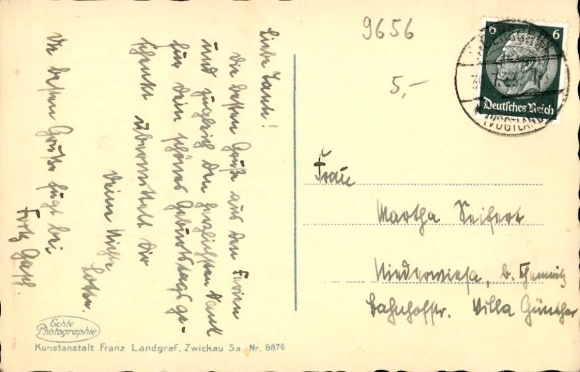 Liebe Tant!
Die besten Grüße aus den Ferien
und zugleich den herzlichsten Dank
für Dein schönes Geburtstagsge-
schenk übermittelt Dir
Deine Nichte
Die besten Grüße fügt bei
Fritz
9656
5,-
6 6
Deutsches Reich
(VOGTLAND)
Frau
Martha Seifert
Niederwiesa, b. Chemnitz
Bahnhofstr. Villa Günther
Echte
Photographie
Kunstanstalt Franz Landgraf, Zwickau Sa Nr. 8876